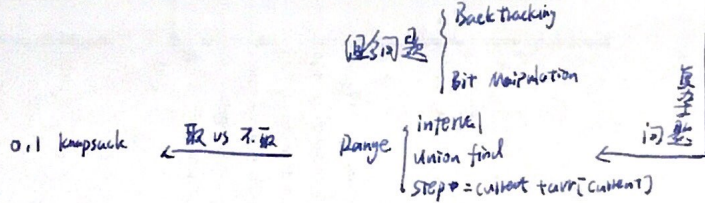 Backtracking
问题
Bit Maipulation
0,1 knapsack
取 vs 不取
Range
interval
union find
= current + arr[current]
问题